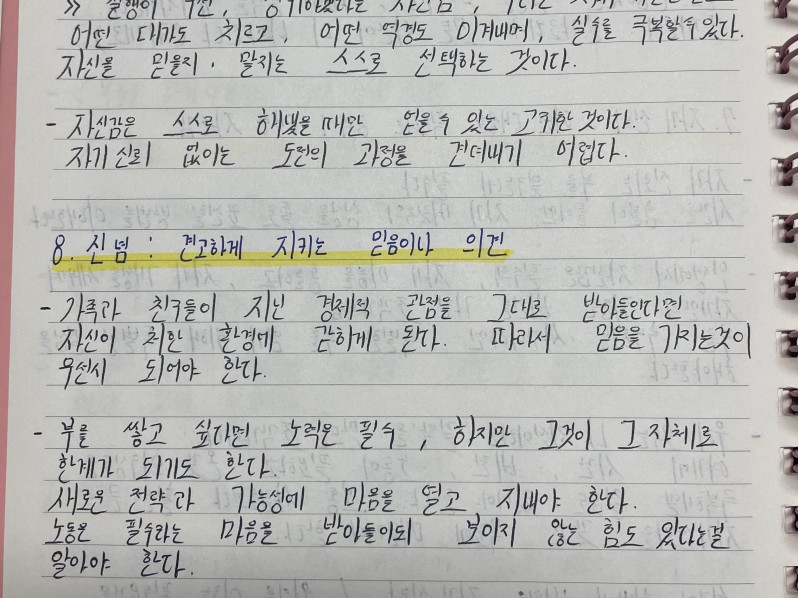 어떤 대가도 치르고, 어떤 역경도 이겨내며, 실수를 극복할 수 있다.
자신을 믿을지, 말지는 스스로 선택하는 것이다.
- 자신감은 스스로 해냈을 때만 얻을 수 있는 고귀한 것이다.
자기 신뢰 없이는 도전의 과정을 견뎌내기 어렵다.
8. 신념 : 견고하게 지키는 믿음이나 의견
- 가족과 친구들이 지닌 경제적 관점을 그대로 받아들인다면
자신이 처한 환경에 갇히게 된다. 따라서 믿음을 가지는것이
우선시 되어야 한다.
- 부를 쌓고 싶다면 노력은 필수, 하지만 그것이 그 자체로
한계가 되기도 한다.
새로운 전략과 가능성에 마음을 열고 지내야 한다.
노동은 필수라는 마음을 받아들이되 보이지 않는 힘도 있다는걸
알아야 한다.